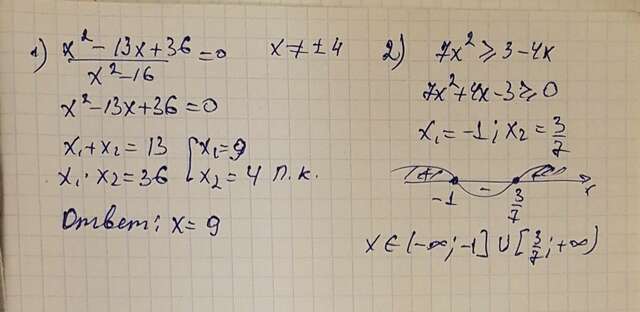 1) (x² - 13x + 36)/(x² - 16) = 0   x ≠ ± 4
x² - 13x + 36 = 0
x₁ + x₂ = 13   [ x₁ = 9
x₁ · x₂ = 36   [ x₂ = 4 п.к.
Ответ: x = 9
2) 7x² ≥ 3 - 4x
7x² + 4x - 3 ≥ 0
x₁ = -1; x₂ = 3/7
+ - +
-1   3/7   x
x ∈ (-∞; -1] ∪ [3/7; +∞)